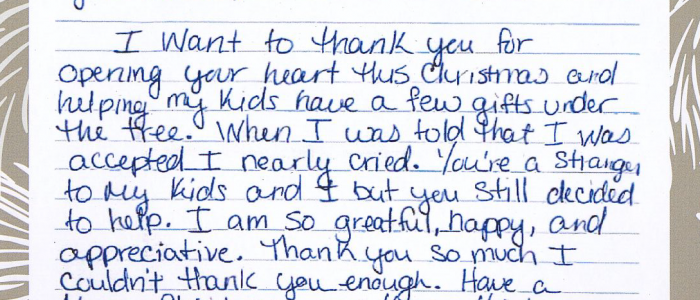 I Want to thank you for
opening your heart this Christmas and
helping my kids have a few gifts under
the tree. When I was told that I was
accepted I nearly cried. You're a Stranger
to my kids and I but you still decided
to help. I am so greatful, happy, and
appreciative. Thank you so much I
couldn't thank you enough. Have a